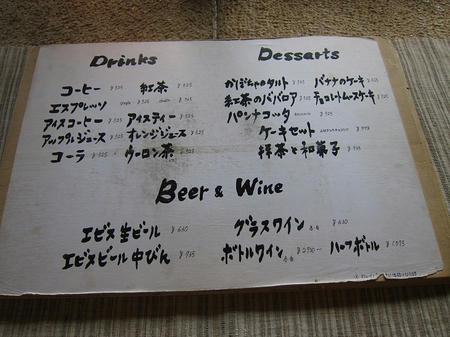 Drinks
コーヒー ¥525 紅茶 ¥525
エスプレッソ single ¥525
アイスコーヒー ¥525 アイスティー ¥525
アップルジュース ¥525 オレンジジュース ¥525
コーラ ¥525 ウーロン茶 ¥525
Dessarts
かぼちゃのタルト ¥525 バナナのケーキ ¥525
紅茶のババロア ¥525 チョコレートムースケーキ ¥525
パンナコッタ ¥525
ケーキセット
抹茶と和菓子
Beer & Wine
エビス生ビール ¥630
エビスビール中びん
グラスワイン 各種 ¥630
ボトルワイン 各種 ハーフボトル